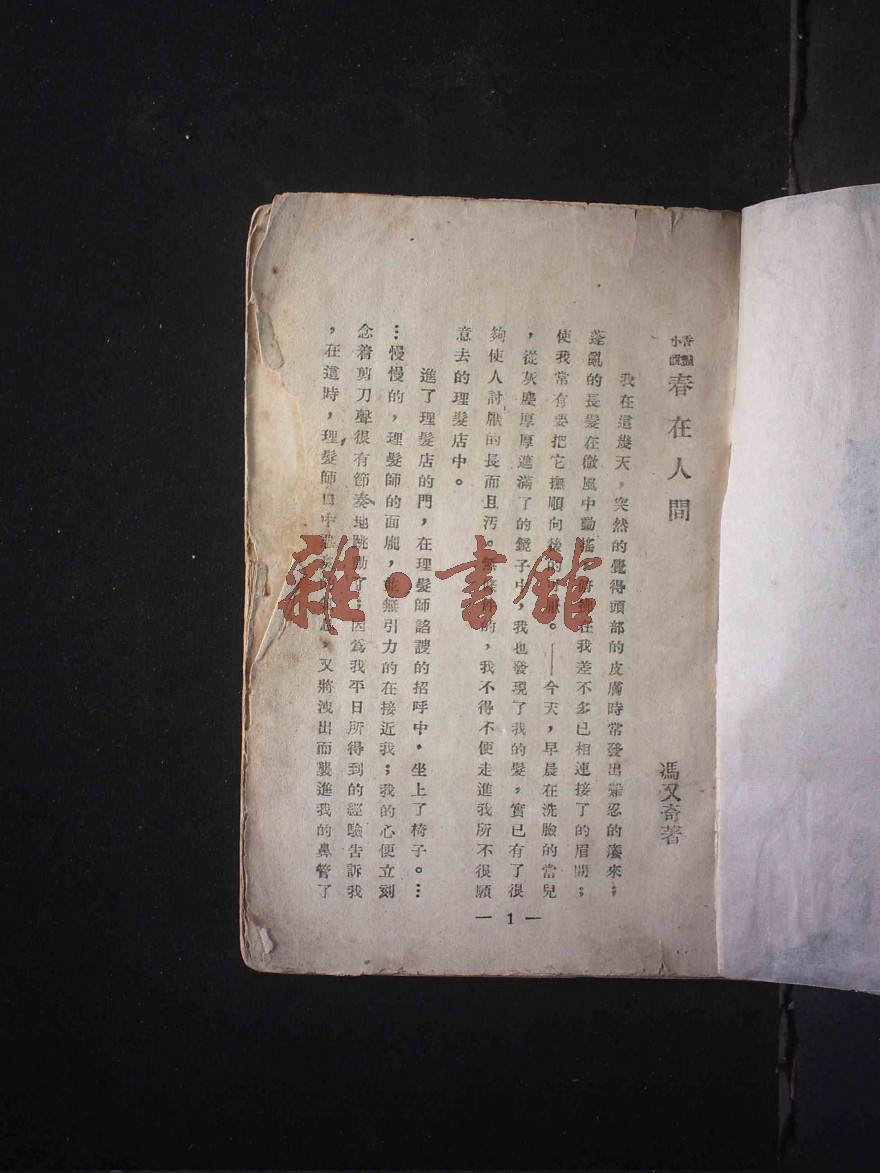 香艷
小說
春在人間
馮又奇著
我在這幾天，突然的覺得頭部的皮膚時常發出難忍的癢來；
蓬亂的長髮在微風中動搖，俯拂在我差不多已相連接了的眉間；
使我常有要把它撫順向後的。——今天，早晨在洗臉的當兒
，從灰塵厚厚遮滿了的鏡子中，我也發現了我的髮，實已有了很
夠使人討厭的長而且污。無條件的，我不得不便走進我所不很願
意去的理髮店中。
進了理髮店的門，在理髮師諂謏的招呼中，坐上了椅子。…
…慢慢的，理髮師的面龐，並無引力的在接近我；我的心便立刻
念着剪刀聲很有節奏地跳動了；因為我平日所得到的經驗告訴我
，在這時，理髮師口中，又將洩出而襲進我的鼻管了
— 1 —
雜·書館